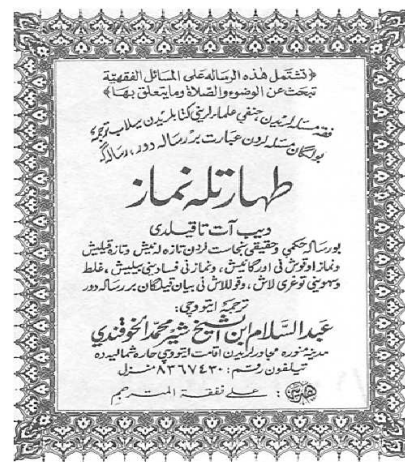 ﴿تشتمل هذه الرسالة على المسائل الفقهية
تبحث عن الوضوء والصلاة وما يتعلق بها﴾
فقه مسئله لريدن، حنفي علمالريني كتابلريدن ييغلاب ترجمه
بولگان مسئله لردن عبارت بر رساله دور، رساله گه
طهارتله نماز
ديب آت تاقيلدى
بو رساله حكمي وحقيقي نجاست لردن تازه لنيش وتازه قيليش
ونماز اوقوش ني اورگانيش، ونماز ني فساديني بيليش، غلط
وسهويني توغري لاش، وقوللاش ني بيان قيلگان بر رساله دور
ترجمه ايتووچي:
عبد السلام ابن الشيخ شير محمد الخوقندي
مدينه منوره مجاورلريدن اقامت ايتووچي حاره شماليه ده
تيلفون رقم: ٨٣٦٧٤٣٠ منزل
: على نفقة المترجم